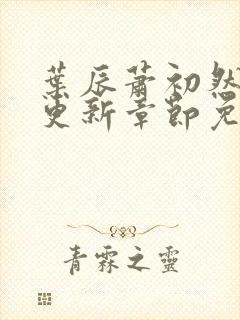 葉辰蕭初然
更新章節免
青霖之靈